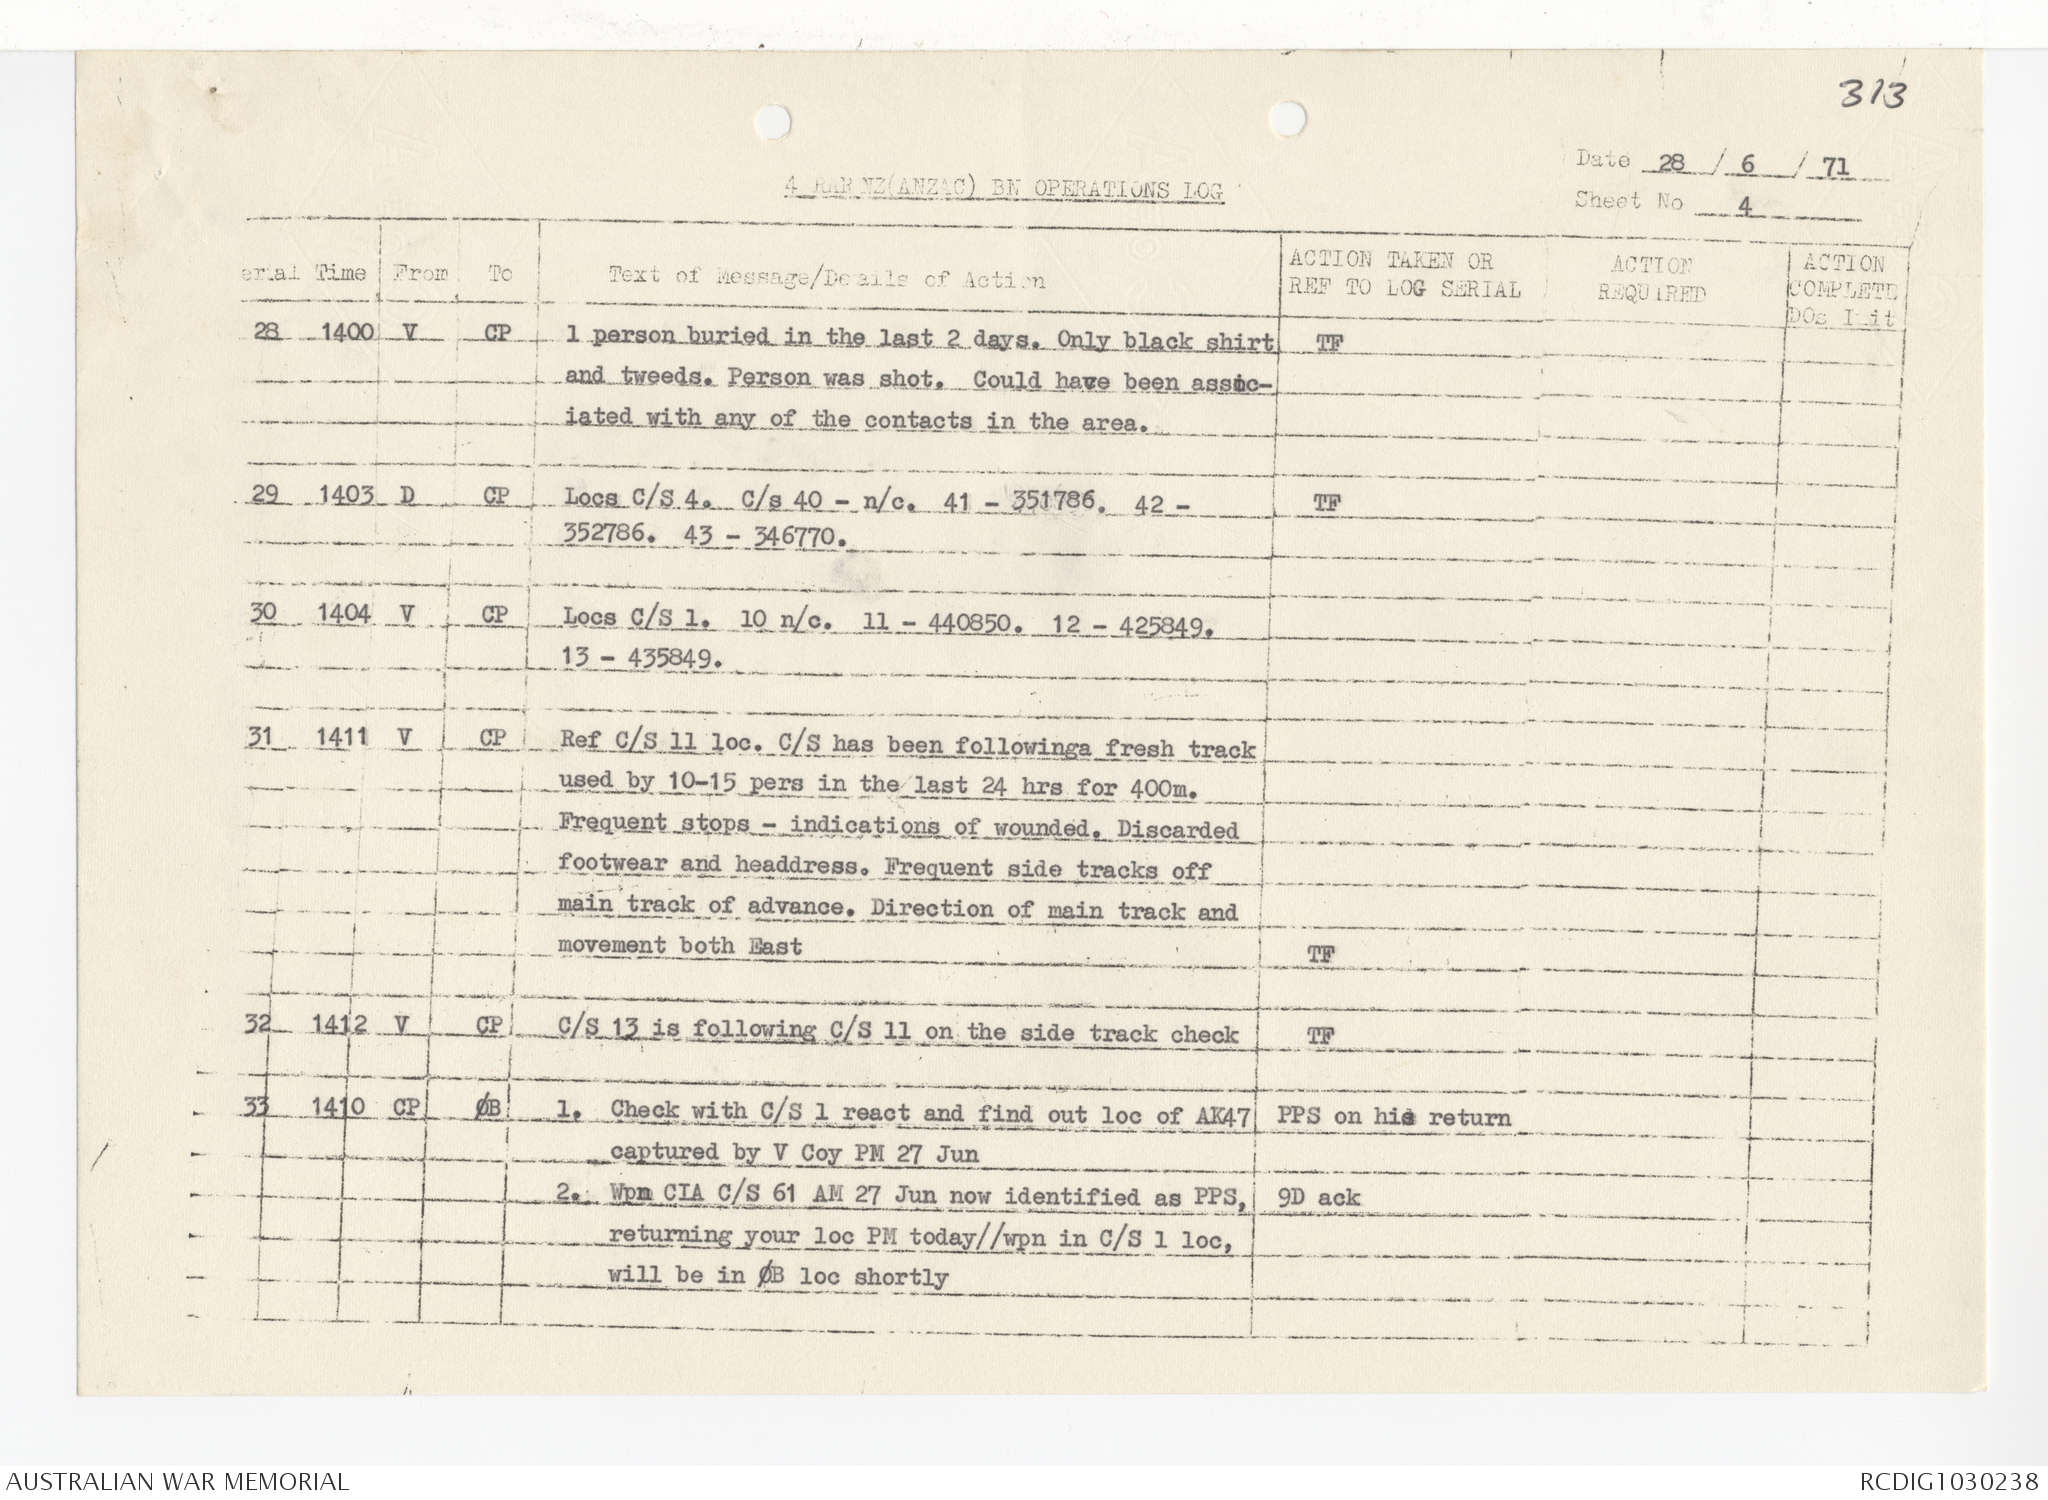 313
Date 28 / 6 / 71
4 RAR NZ(ANZAC) BN OPERATIONS LOG
Sheet No 4
erial Time From To Text of Message/Details of Action ACTION TAKEN OR REF TO LOG SERIAL ACTION REQUIRED ACTION COMPLETE DOs Init
28 1400 V CP 1 person buried in the last 2 days. Only black shirt TF
and tweeds. Person was shot. Could have been assoc-
iated with any of the contacts in the area.
29 1403 D CP Locs C/S 4. C/s 40 - n/c. 41 - 351786. 42 - TF
352786. 43 - 346770.
30 1404 V CP Locs C/S 1. 10 n/c. 11 - 440850. 12 - 425849.
13 - 435849.
31 1411 V CP Ref C/S 11 loc. C/S has been followinga fresh track
used by 10-15 pers in the last 24 hrs for 400m.
Frequent stops - indications of wounded. Discarded
footwear and headdress. Frequent side tracks off
main track of advance. Direction of main track and
movement both East TF
32 1412 V CP C/S 13 is following C/S 11 on the side track check TF
33 1410 CP ØB 1. Check with C/S 1 react and find out loc of AK47 PPS on his return
captured by V Coy PM 27 Jun
2. Wpn CIA C/S 61 AM 27 Jun now identified as PPS, 9D ack
returning your loc PM today//wpn in C/S 1 loc,
will be in ØB loc shortly
AUSTRALIAN WAR MEMORIAL
RCDIG1030238